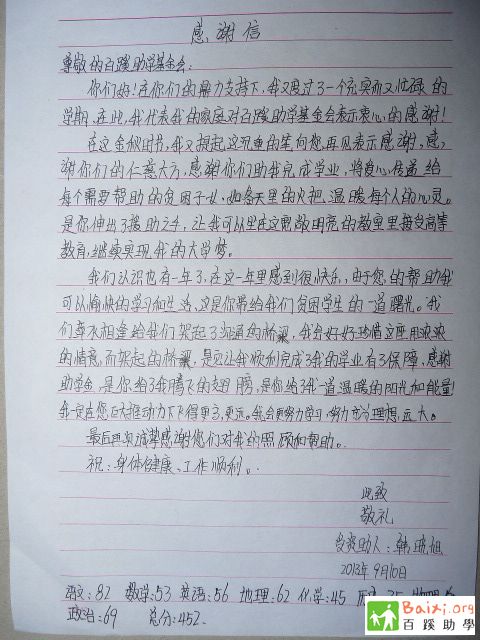 感谢信
尊敬的百蹊助学基金会:
你们好!在你们的鼎力支持下,我又度过了一个充实而又忙碌的
学期,在此,我代表我的家庭对百蹊助学基金会表示衷心的感谢!
在这金秋时节,我又提起这沉重的笔向您再见表示感谢,感
谢你们的仁慈大方,感谢你们助我完成学业,将爱心传递给
每个需要帮助的贫困子女,如冬天里的火把,温暖每个人的心灵。
是你伸出了援助之手,让我可以坐在这宽敞明亮的教室里接受高等
教育,继续实现我的大学梦。
我们认识也有一年了,在这一年里感到很快乐,由于您的帮助我
可以愉快的学习和生活,这是你带给我们贫困学生的一道曙光。我
们萍水相逢给我们架起了沟通的桥梁,我会好好珍惜这座用浓浓
的情意而架起的桥梁,是您让我顺利完成了我的学业有了保障,感谢
助学金,是你给了我腾飞的翅膀,是你给了我一道温暖的阳光和能量!
我一定在您巨大推动力下飞得更高,更远。我会更努力学习,努力充分理想,远大。
最后再次诚挚感谢您们对我的照顾和帮助。
祝:身体健康、工作顺利。
此致
敬礼
受资助人:韩 旭
2013年9月10日
语文:82 数学:53 英语:56 地理:62 化学:45 历 35 物理
政治:69 总分:452.
Baixi.org
百蹊助學